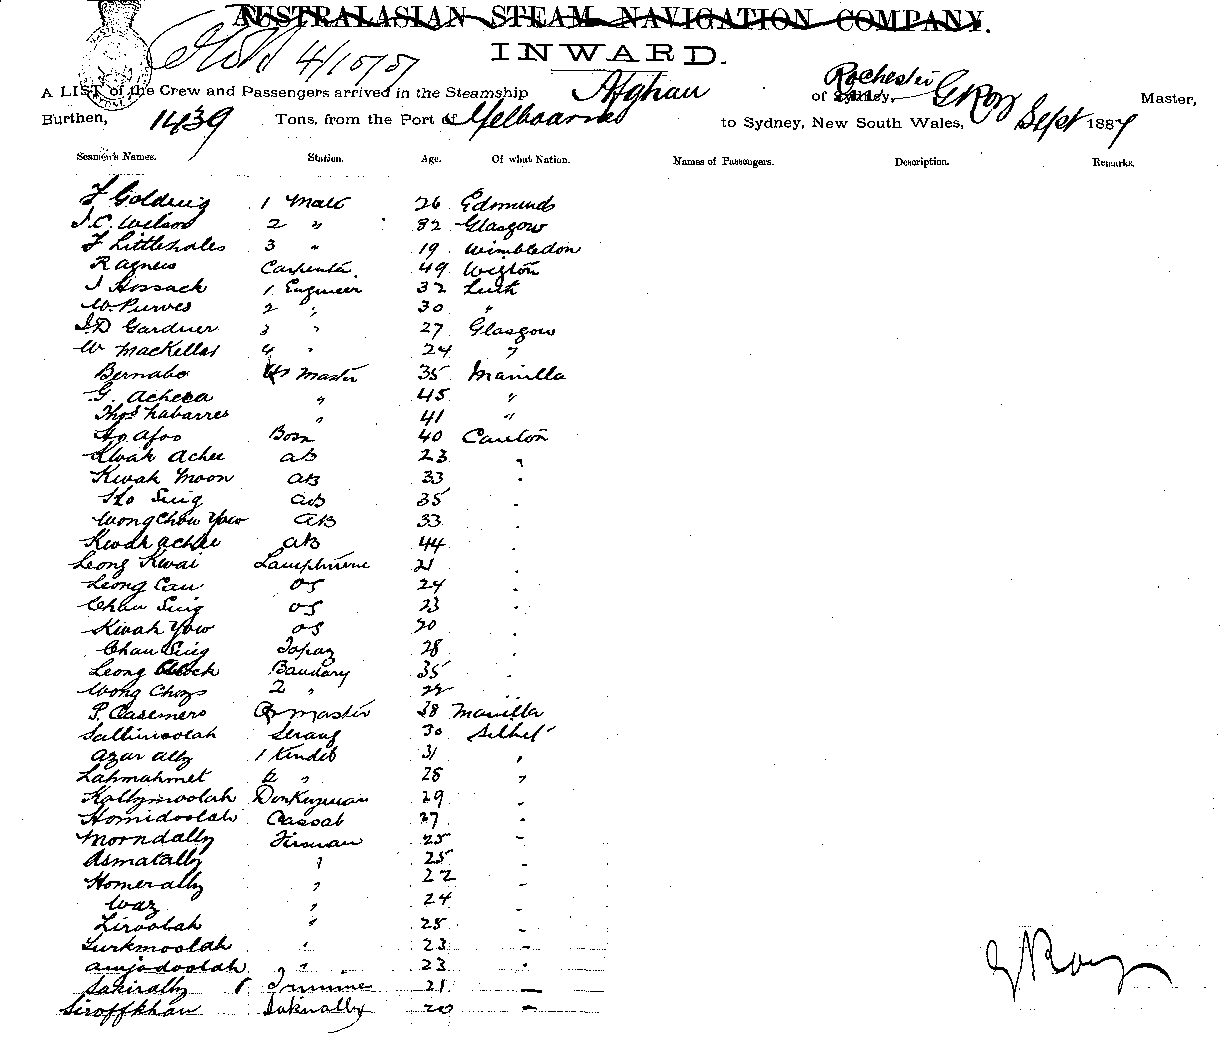 AUSTRALASIAN STEAM NAVIGATION COMPANY.
INWARD.
A LIST of the Crew and Passengers arrived in the Steamship Afghan of Sydney, Rochester G Roy Master,
Burthen, 1439 Tons, from the Port of Melbourne to Sydney, New South Wales, Sept 1887
Seamen's Names. Station. Age. Of what Nation. Names of Passengers. Description. Remarks.
F Golding 1 Mate 26 Edmunds
J.C. Wilson 2 " 32 Glasgow
F Littlehales 3 " 19 Wimbledon
R Agnew Carpenter 49 Wigton
J Hossack 1 Engineer 32 Leith
W. Purves 2 " 30 "
J.D Gardner 3 " 27 Glasgow
W MacKellar 4 " 24 "
Bernabo Qr Master 35 Manilla
G. Acheca " 45 "
Thos Labarres " 41 "
Ho Afoo Bosn 40 Canton
Kwak Achee AB 23 "
Kwak Moon AB 33 "
Ho Sing AB 35 "
Wong Chow Yow AB 33 "
Kwak Achee AB 44 "
Leong Kwai Lamptrimmer 21 "
Leong Cau OS 24 "
Chau Sing OS 23 "
Kwak Yow OS 20 "
Chau Sing Topaz 28 "
Leong Bandary 35 "
Wong Choy 2 " 22 "
P. Casemero Qr Master 38 Manilla
Sallimoolah Serang 30 Silhet
Azur Ally 1 Tindel 31 "
Lahmahmet 2 " 28 "
Kallymoolah Donkeyman 29 "
Homidoolah Cassab 27 "
Morndally Fireman 25 "
Asmatally " 25 "
Homerally " 22 "
Waz " 24 "
Liroolah " 25 "
Lurkmoolah " 23 "
Amjodoolah " 23 "
Sakirally Trimmer 21 "
Siroffkhan 20 "
G Roy